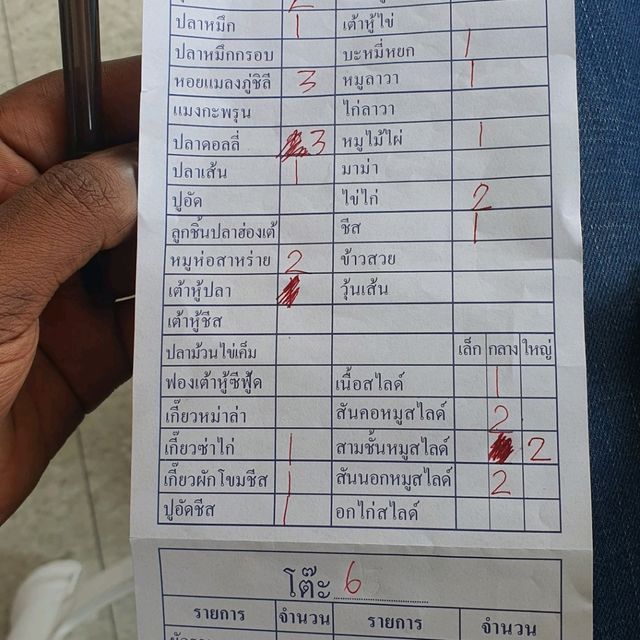 ปลาหมึก 1 เต้าหู้ไข่
ปลาหมึกกรอบ บะหมี่หยก 1
หอยแมลงภู่ชิลี 3 หมูลาวา 1
แมงกะพรุน ไก่ลาวา
ปลาดอลลี่ 3 หมูไม้ไผ่ 1
ปลาเส้น 1 มาม่า
ปูอัด ไข่ไก่ 2
ลูกชิ้นปลาฮ่องเต้ ชีส 1
หมูห่อสาหร่าย 2 ข้าวสวย
เต้าหู้ปลา วุ้นเส้น
เต้าหู้ชีส
ปลาม้วนไข่เค็ม เล็ก กลาง ใหญ่
ฟองเต้าหู้ซีฟู้ด เนื้อสไลด์ 1
เกี๊ยวหม่าล่า สันคอหมูสไลด์ 2
เกี๊ยวซ่าไก่ 1 สามชั้นหมูสไลด์ 2
เกี๊ยวผักโขมชีส 1 สันนอกหมูสไลด์ 2
ปูอัดชีส 1 อกไก่สไลด์
โต๊ะ 6
รายการ จำนวน รายการ จำนวน